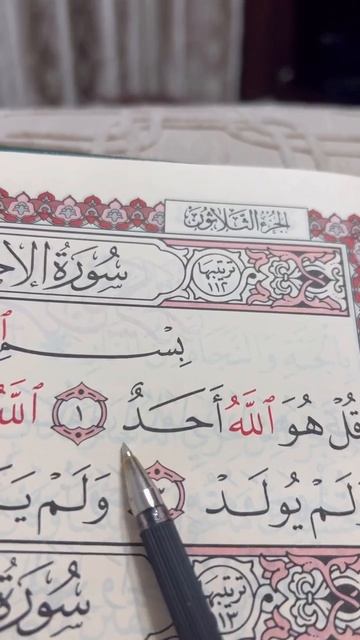 الجُزءُ الثَّلَاثُونَ
تَرتيبُهَا ١١٢ سُورَةُ الإخ
بِسْمِ
قُلْ هُوَ ٱللَّهُ أَحَدٌ ١ ٱللَّهُ
لَمْ يُولَدْ وَلَمْ يَ
تَرتيبُهَا ١١٣ سُورَةُ